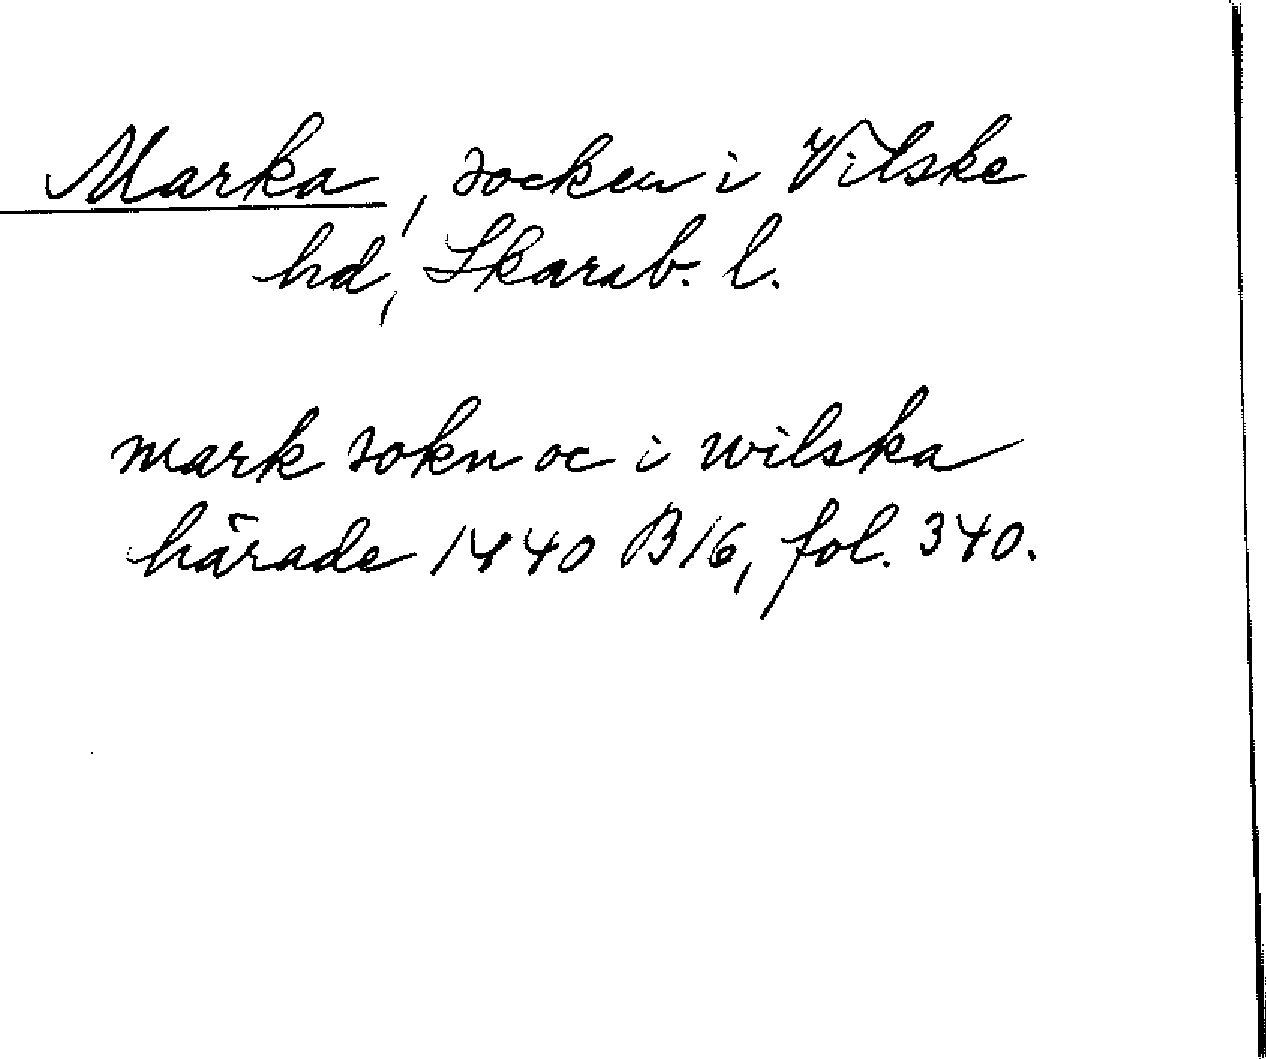 Marka, socken i Vilske
hd, Skarab. l.
mark sokn oc i wilska
härade 1440 B 16, fol. 340.